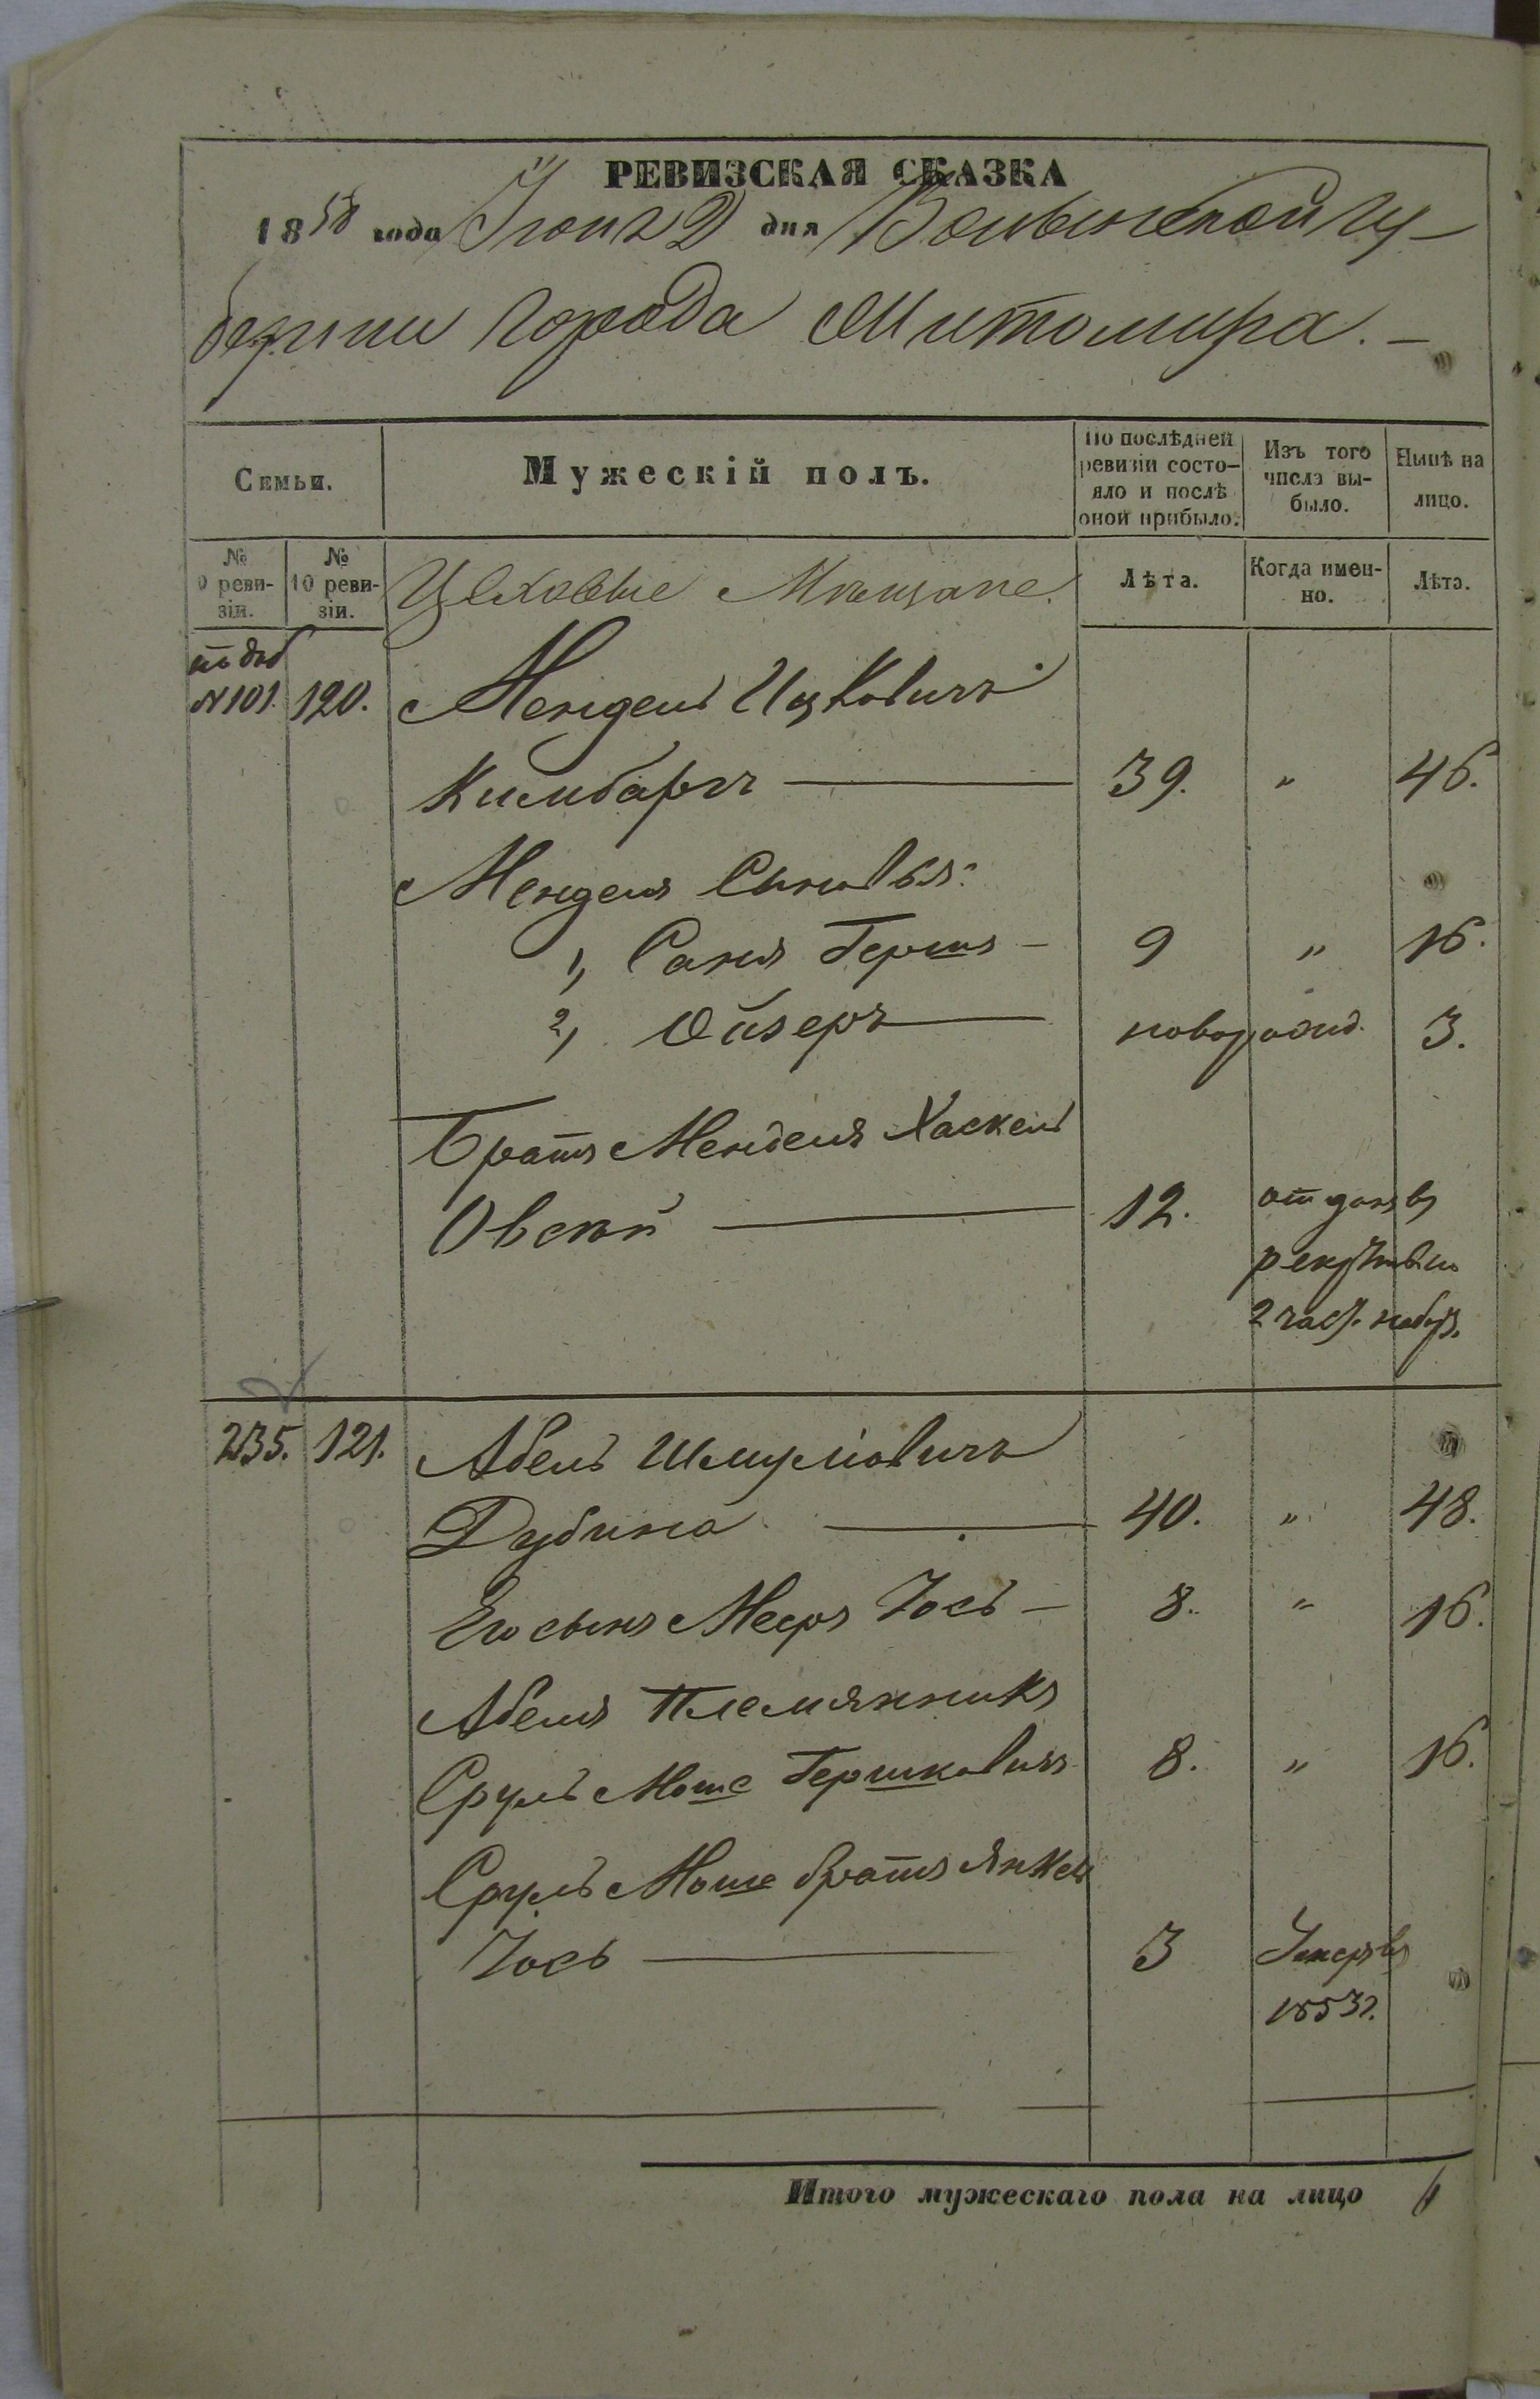 РЕВИЗСКАЯ СКАЗКА
1858 года Іюня 2 дня Волынской гу-
берніи города Житомира. —
Семьи.
Мужескій полъ.
По послѣдней ревизіи состо-яло и послѣ оной прибыло.
Изъ того числа вы-было.
Нынѣ на лицо.
№ 9 реви-зіи.
№ 10 реви-зіи.
Цеховые Мѣщане.
Лѣта.
Когда имен-но.
Лѣта.
по доб
№101. 120. Мендель Ицковичъ
Кимбаръ — 39. " 46.
Менделя Сыновья:
1, Саня Гершъ — 9 " 16.
2, Ойзеръ — новорожд. 3.
Братъ Менделя Хаскель
Овсей — 12. отданъ въ
рекруты въ
2 част. наборъ.
235. 121. Абель Шмулiовичъ
Дубина — 40. " 48.
Его сынъ Мееръ Іось — 8. " 16.
Абеля Племянникъ
Сруль Моше Гершковичъ 8. " 16.
Сруль Моше братъ Янкель
Іось — 3 Умеръ въ
1853г.
Итого мужескаго пола на лицо 6